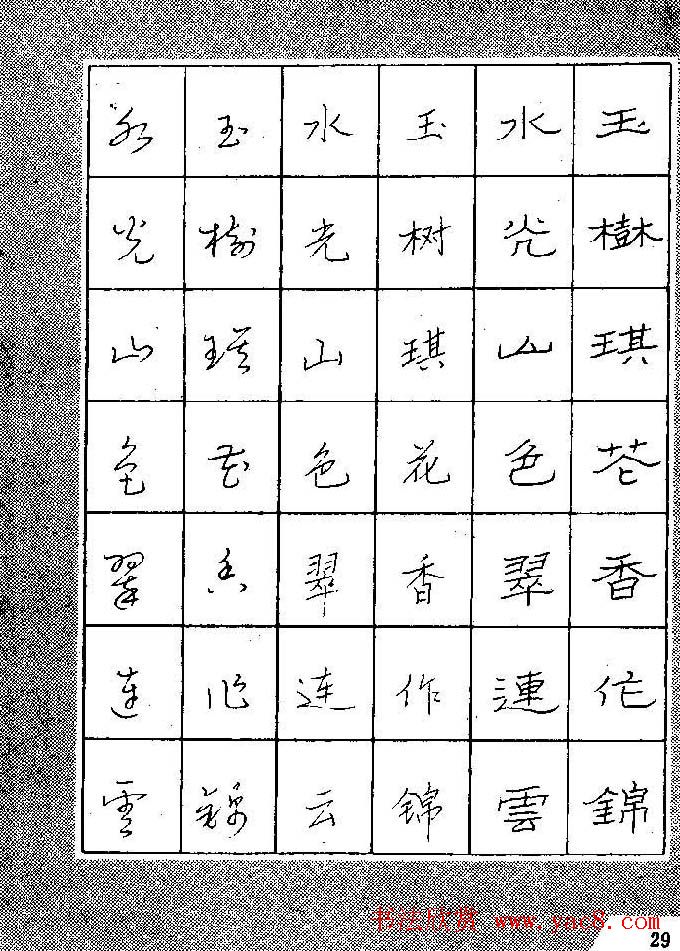 玉樹琪花香作錦
水光山色翠連雲
玉树琪花香作锦
水光山色翠连云
玉樹琪花香作錦
水光山色翠連雲
书法欣赏 www.yac8.com
29